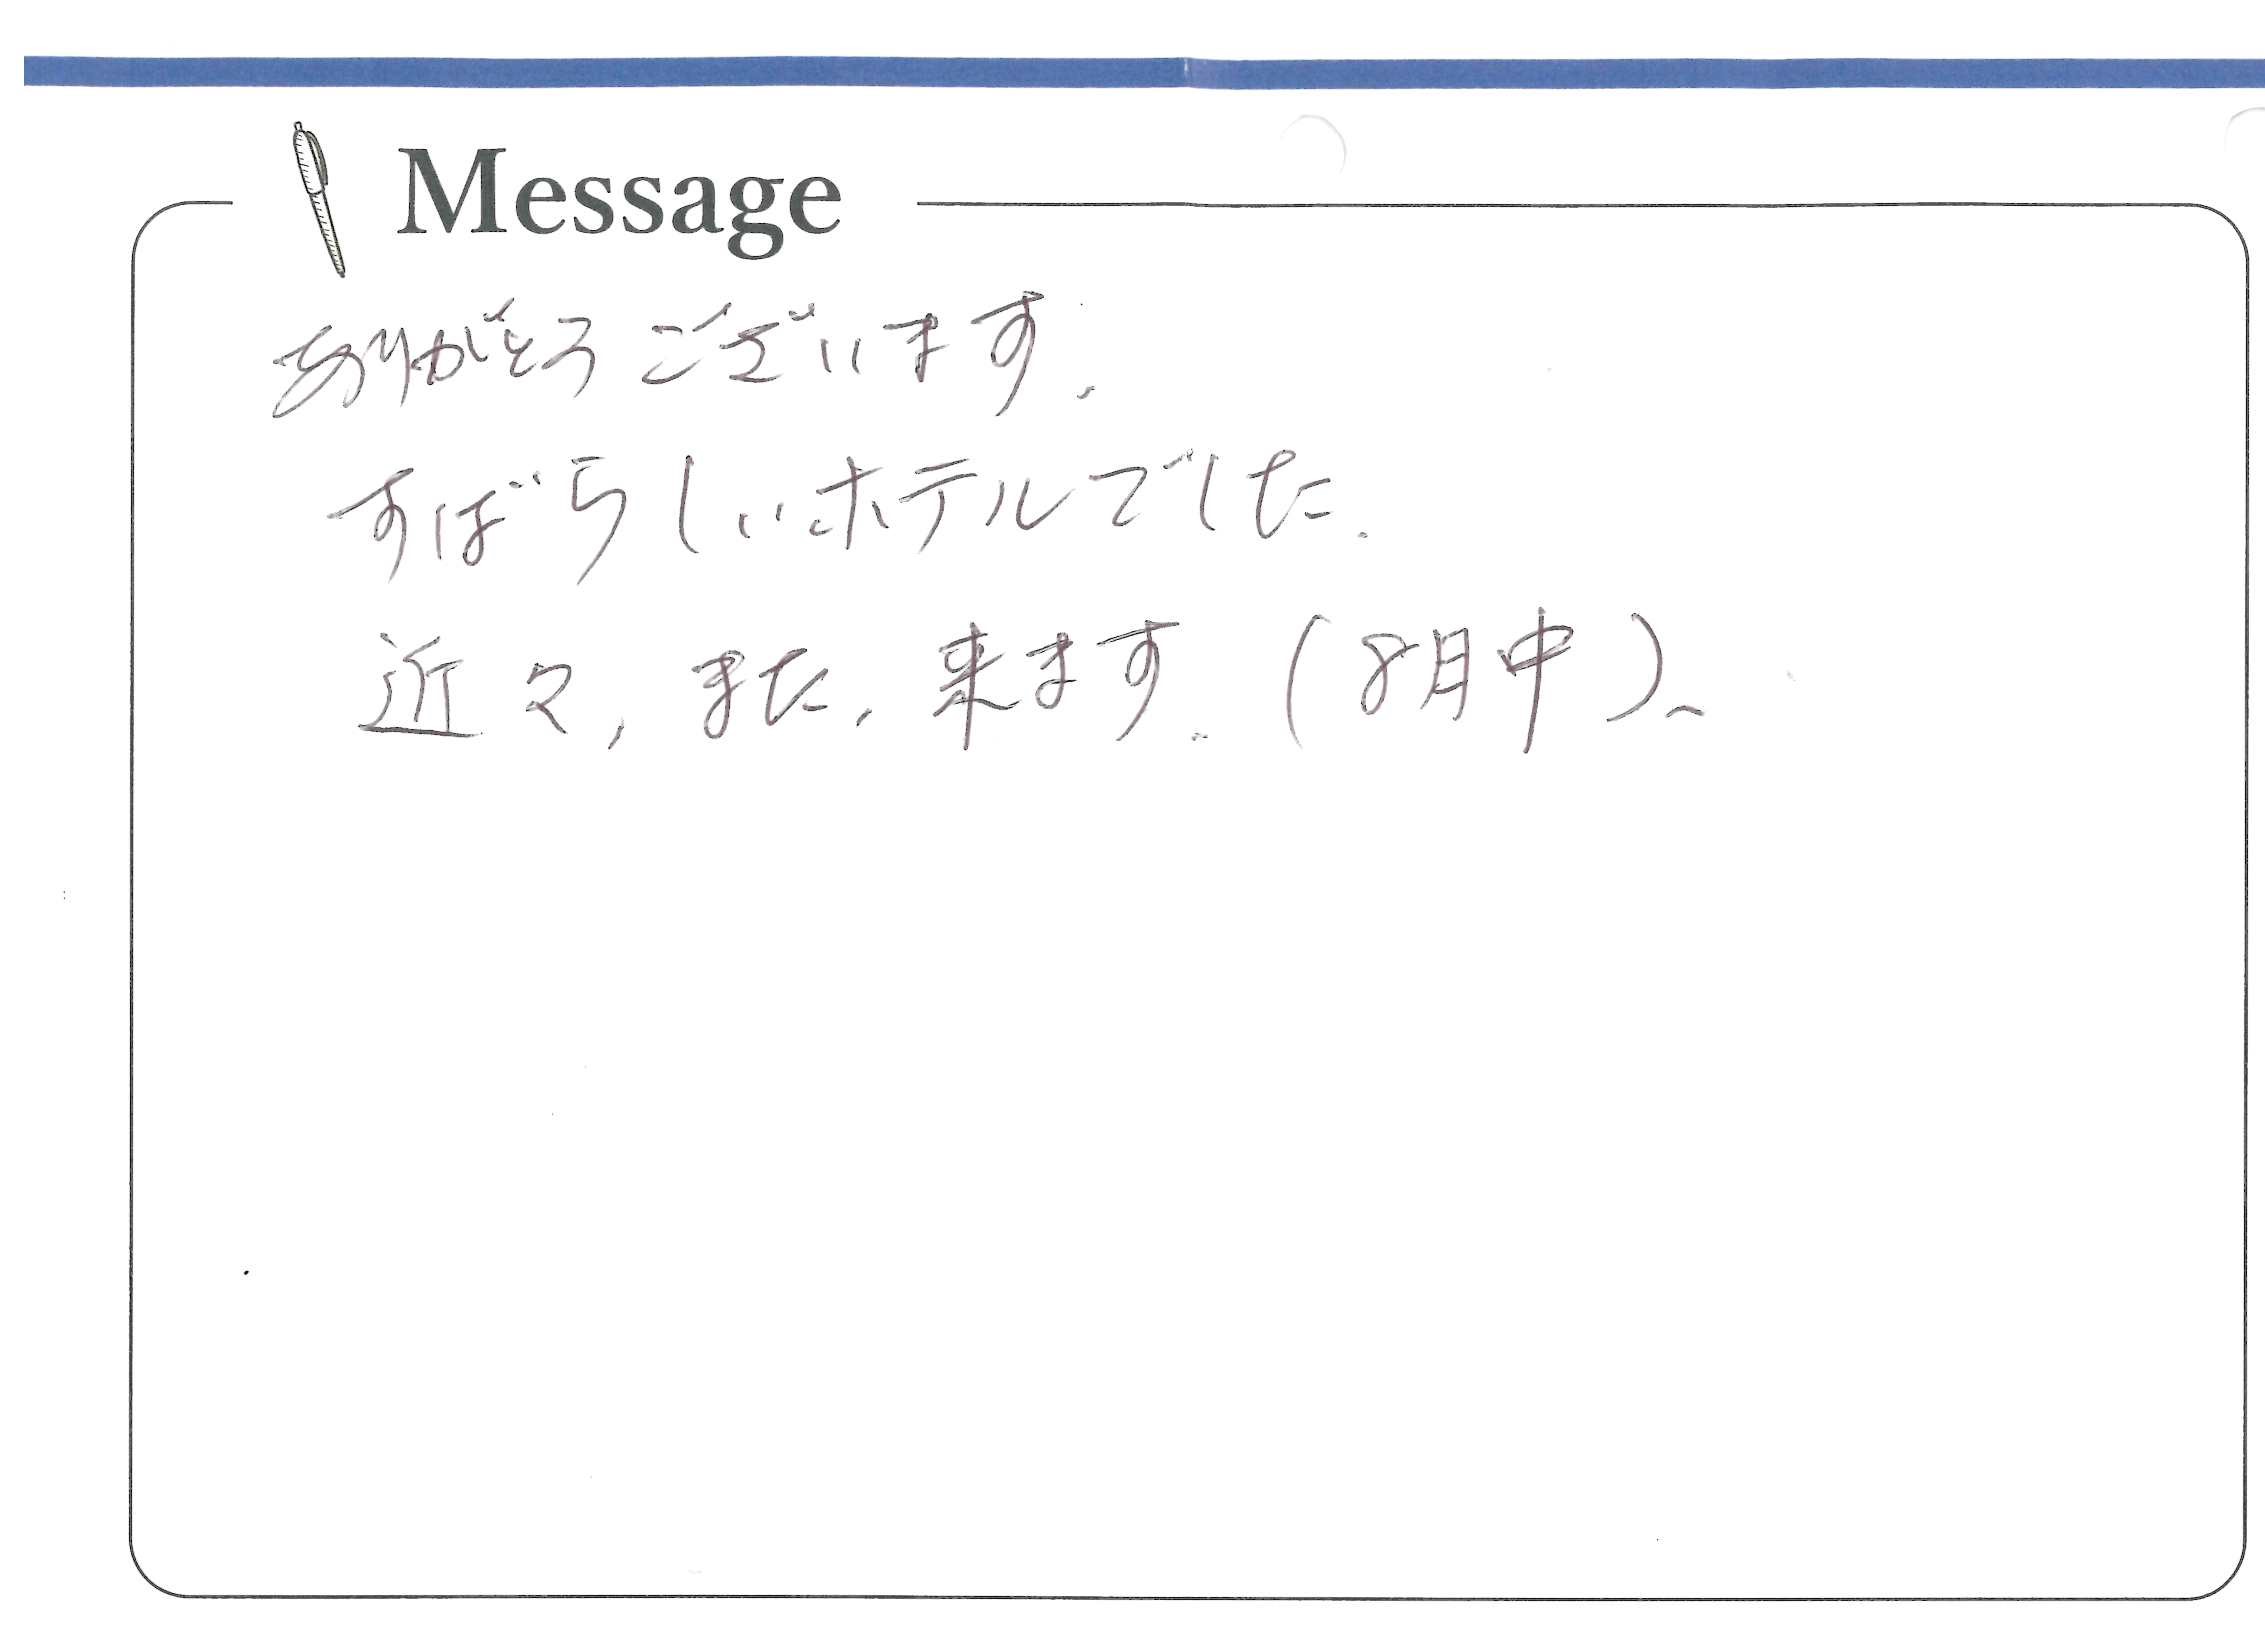 Message
ありがとうございます。
すばらしいホテルでした。
近々、また、来ます。(8月中)、